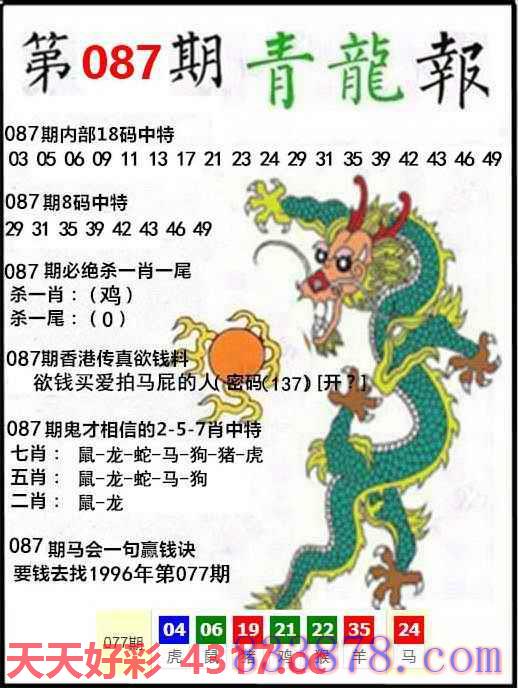 第087期 青龍報
087期内部18码中特
03 05 06 09 11 13 17 21 23 24 29 31 35 39 42 43 46 49
087期8码中特
29 31 35 39 42 43 46 49
087期必绝杀一肖一尾
杀一肖：(鸡)
杀一尾：(0)
087期香港传真欲钱料
欲钱买爱拍马屁的人(密码(137)[开?]
087期鬼才相信的2-5-7肖中特
七肖： 鼠-龙-蛇-马-狗-猪-虎
五肖： 鼠-龙-蛇-马-狗
二肖： 鼠-龙
087期马会一句赢钱诀
要钱去找1996年第077期
077期 04 06 19 21 22 35 24
虎 鼠 猪 鸡 猴 羊 马
天天好彩 4317.cc